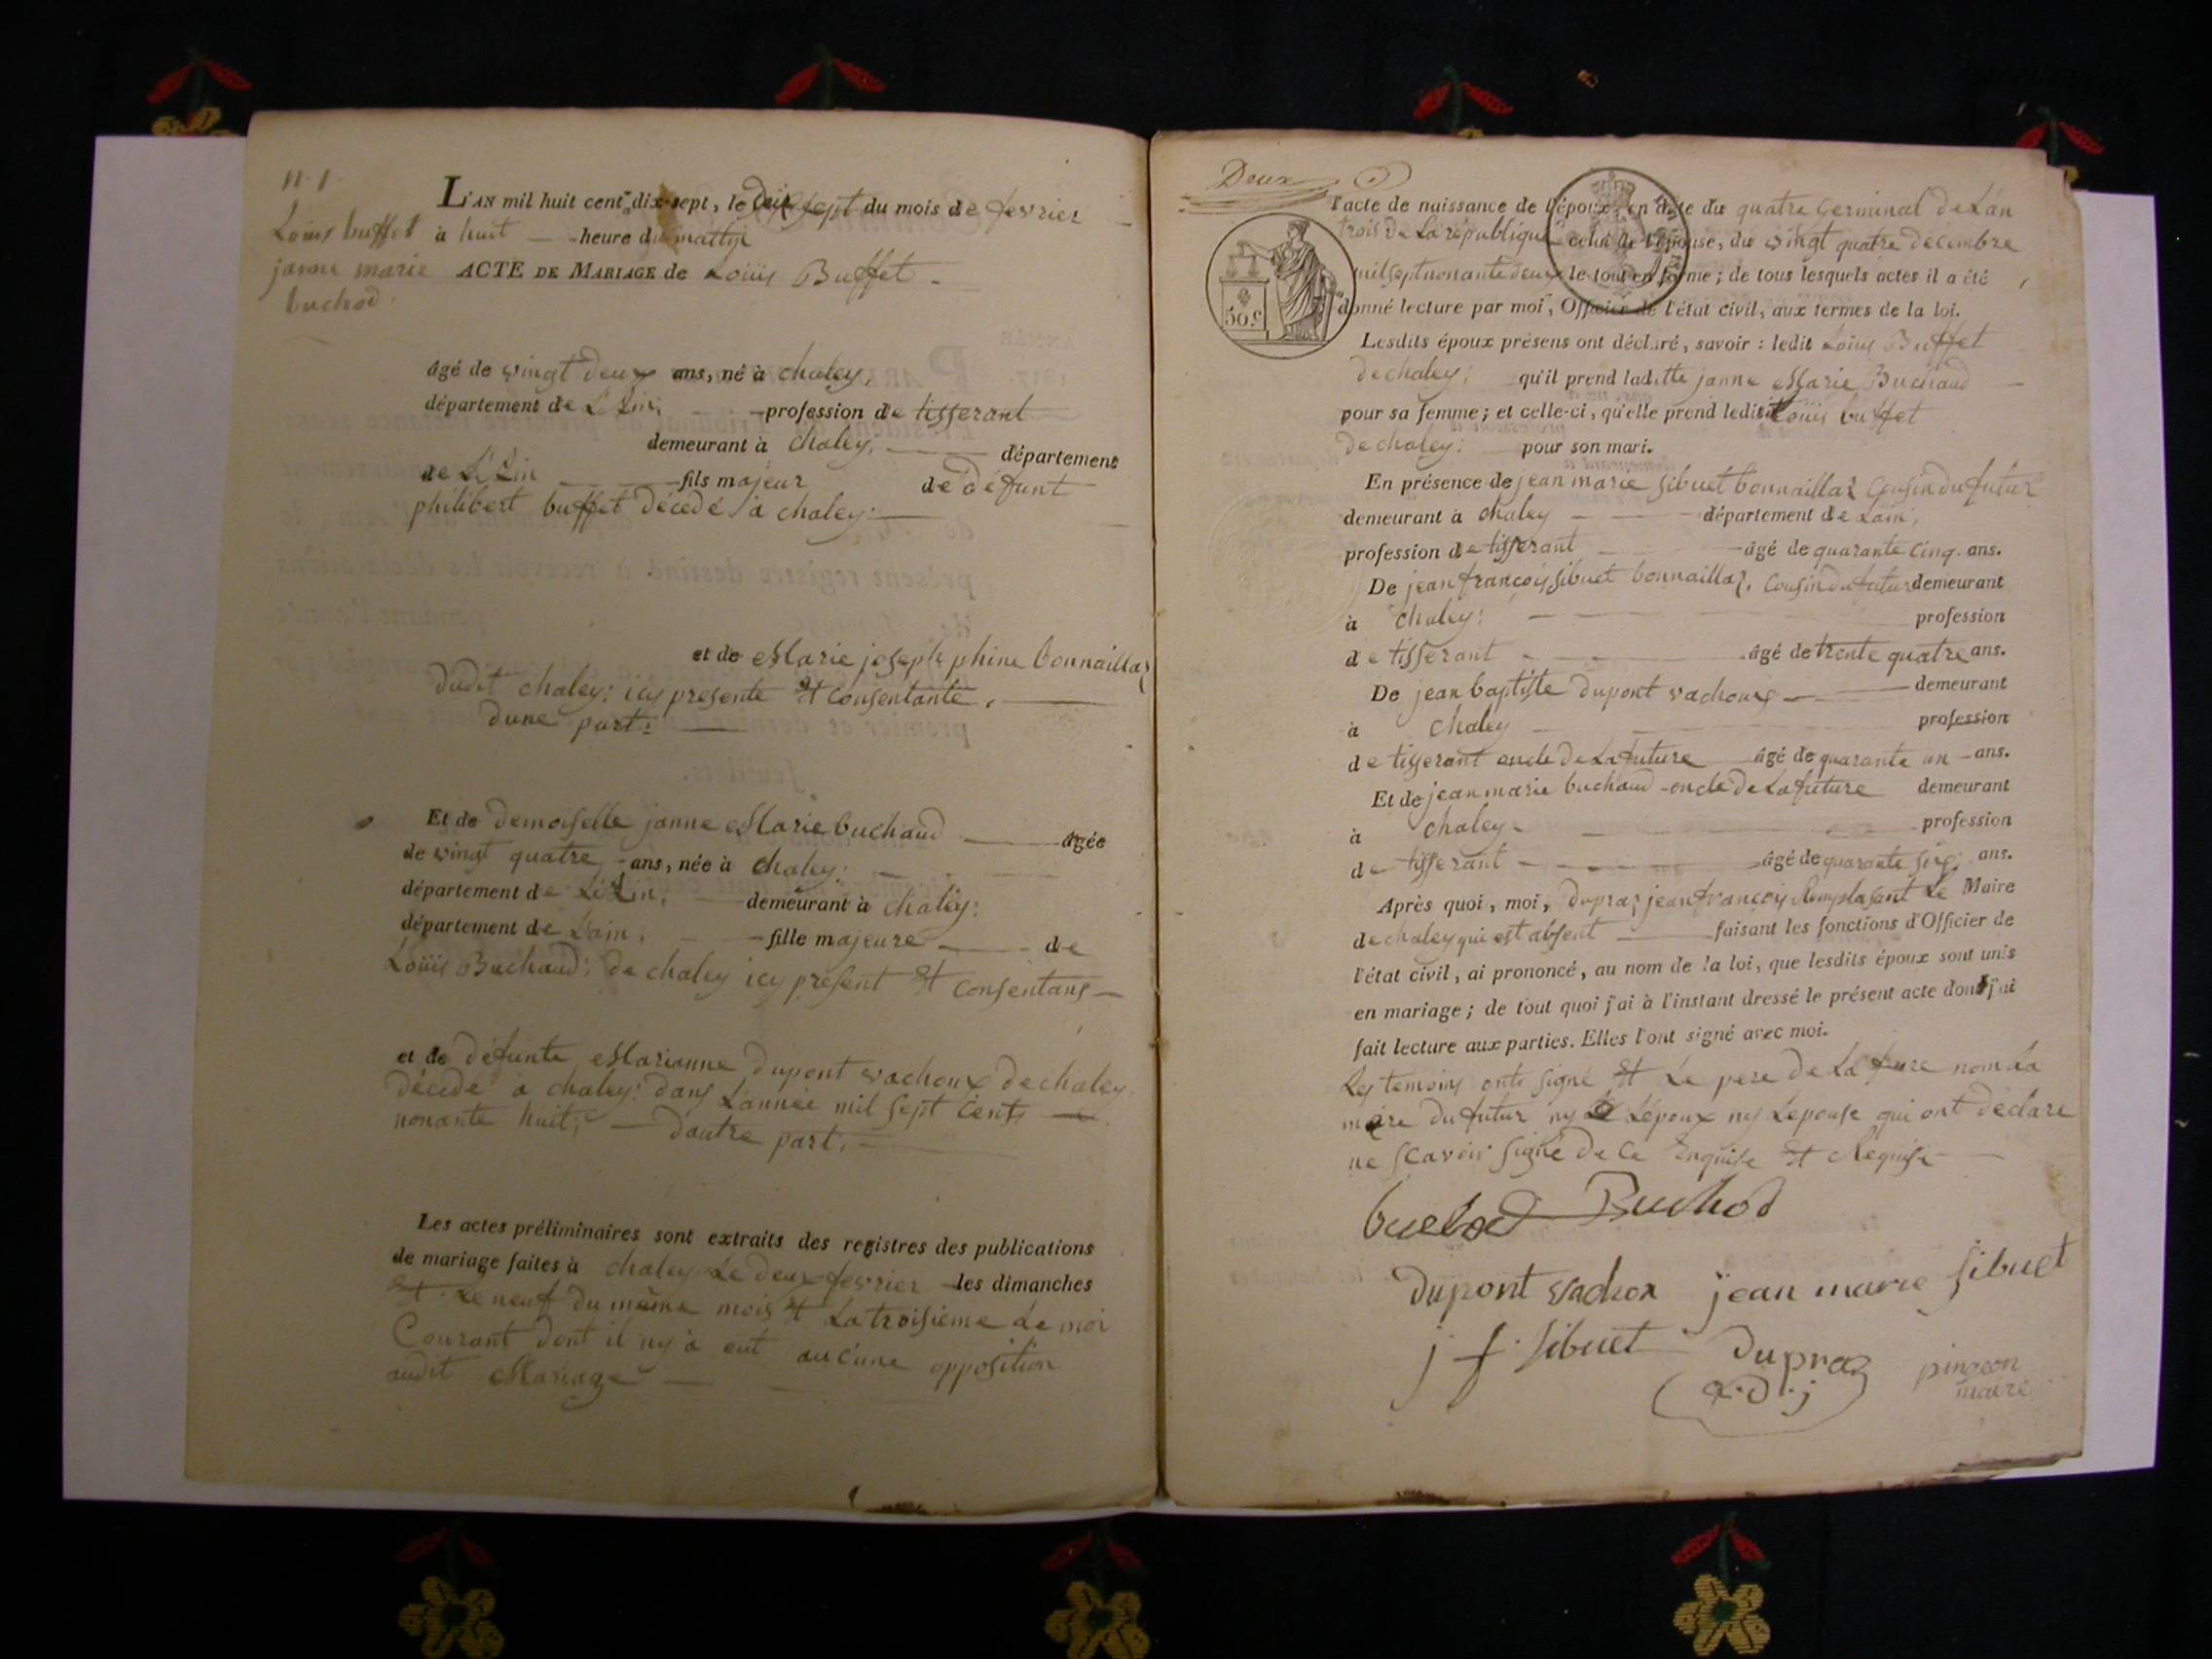 n. 1
Louis buffet
janne marie
buchod
L'AN mil huit cent dix-sept, le dix sept du mois de fevrier
à huit heure du mattin
ACTE DE MARIAGE de Loüis Buffet
âgé de vingt deux ans, né à chaley,
département de L'Ain, profession de tisserant
demeurant à chaley, département
de L'Ain fils majeur de défunt
philibert buffet décedé à chaley:
et de Marie joseph phine bonnaillaz
dudit chaley: icy presente Et consentante,
dune part:
Et de demoiselle janne Marie buchaud âgée
de vingt quatre ans, née à chaley:
département de L'Ain, demeurant à chaley:
département de Lain, fille majeure de
Loüis Buchaud; de chaley icy présent Et consentans
et de défunte Marianne dupont vachoux de chaley
décédé à chaley: dans L'année mil sept cents
nonante huit; dautre part,
Les actes préliminaires sont extraits des registres des publications
de mariage faites à chaley Le deux fevrier les dimanches
Et Le neuf du même mois Et La troisieme Le moi
Courant dont il ny à eut aucune opposition
audit Mariage
Deux
50.C
l'acte de naissance de l'époux, en date du quatre germinal de L'an
trois de La république celui de l'épouse, du vingt quatre décembre
mil sept nonante deux le tout en forme; de tous lesquels actes il a été
donné lecture par moi, Officier de l'état civil, aux termes de la loi.
Lesdits époux présens ont déclaré, savoir : ledit Loüis Buffet
de chaley; qu'il prend laditte janne Marie Buchaud
pour sa femme; et celle-ci, qu'elle prend ledit Loüis buffet
de chaley: pour son mari.
En présence de jean marie sibuet bonnaillaz Cousin du futur
demeurant à chaley département de Lain,
profession de tisserant âgé de quarante cinq ans.
De jean françois sibuet bonnaillaz, cousin du futur demeurant
à chaley: profession
de tisserant âgé de trente quatre ans.
De jean baptiste dupont vachoux demeurant
à chaley profession
de tisserant oncle de La future âgé de quarante un ans.
Et de jean marie buchaud oncle de La future demeurant
à chaley profession
de tisserant âgé de quarante six ans.
Après quoi, moi, dupraz jean françois Remplasant Le Maire
de chaley qui est absent faisant les fonctions d'Officier de
l'état civil, ai prononcé, au nom de la loi, que lesdits époux sont unis
en mariage; de tout quoi j'ai à l'instant dressé le présent acte dont j'ai
fait lecture aux parties. Elles l'ont signé avec moi.
Les temoins onts signé Et Le pere de La fure nom La
mere du futur ny Lépoux ny Lepouse qui ont declaré
ne scavoir signé de ce Enquise Et Requise
buchod Buchod
dupont vachox jean marie sibuet
j f sibuet dupraz pingeon
a.d.j maire